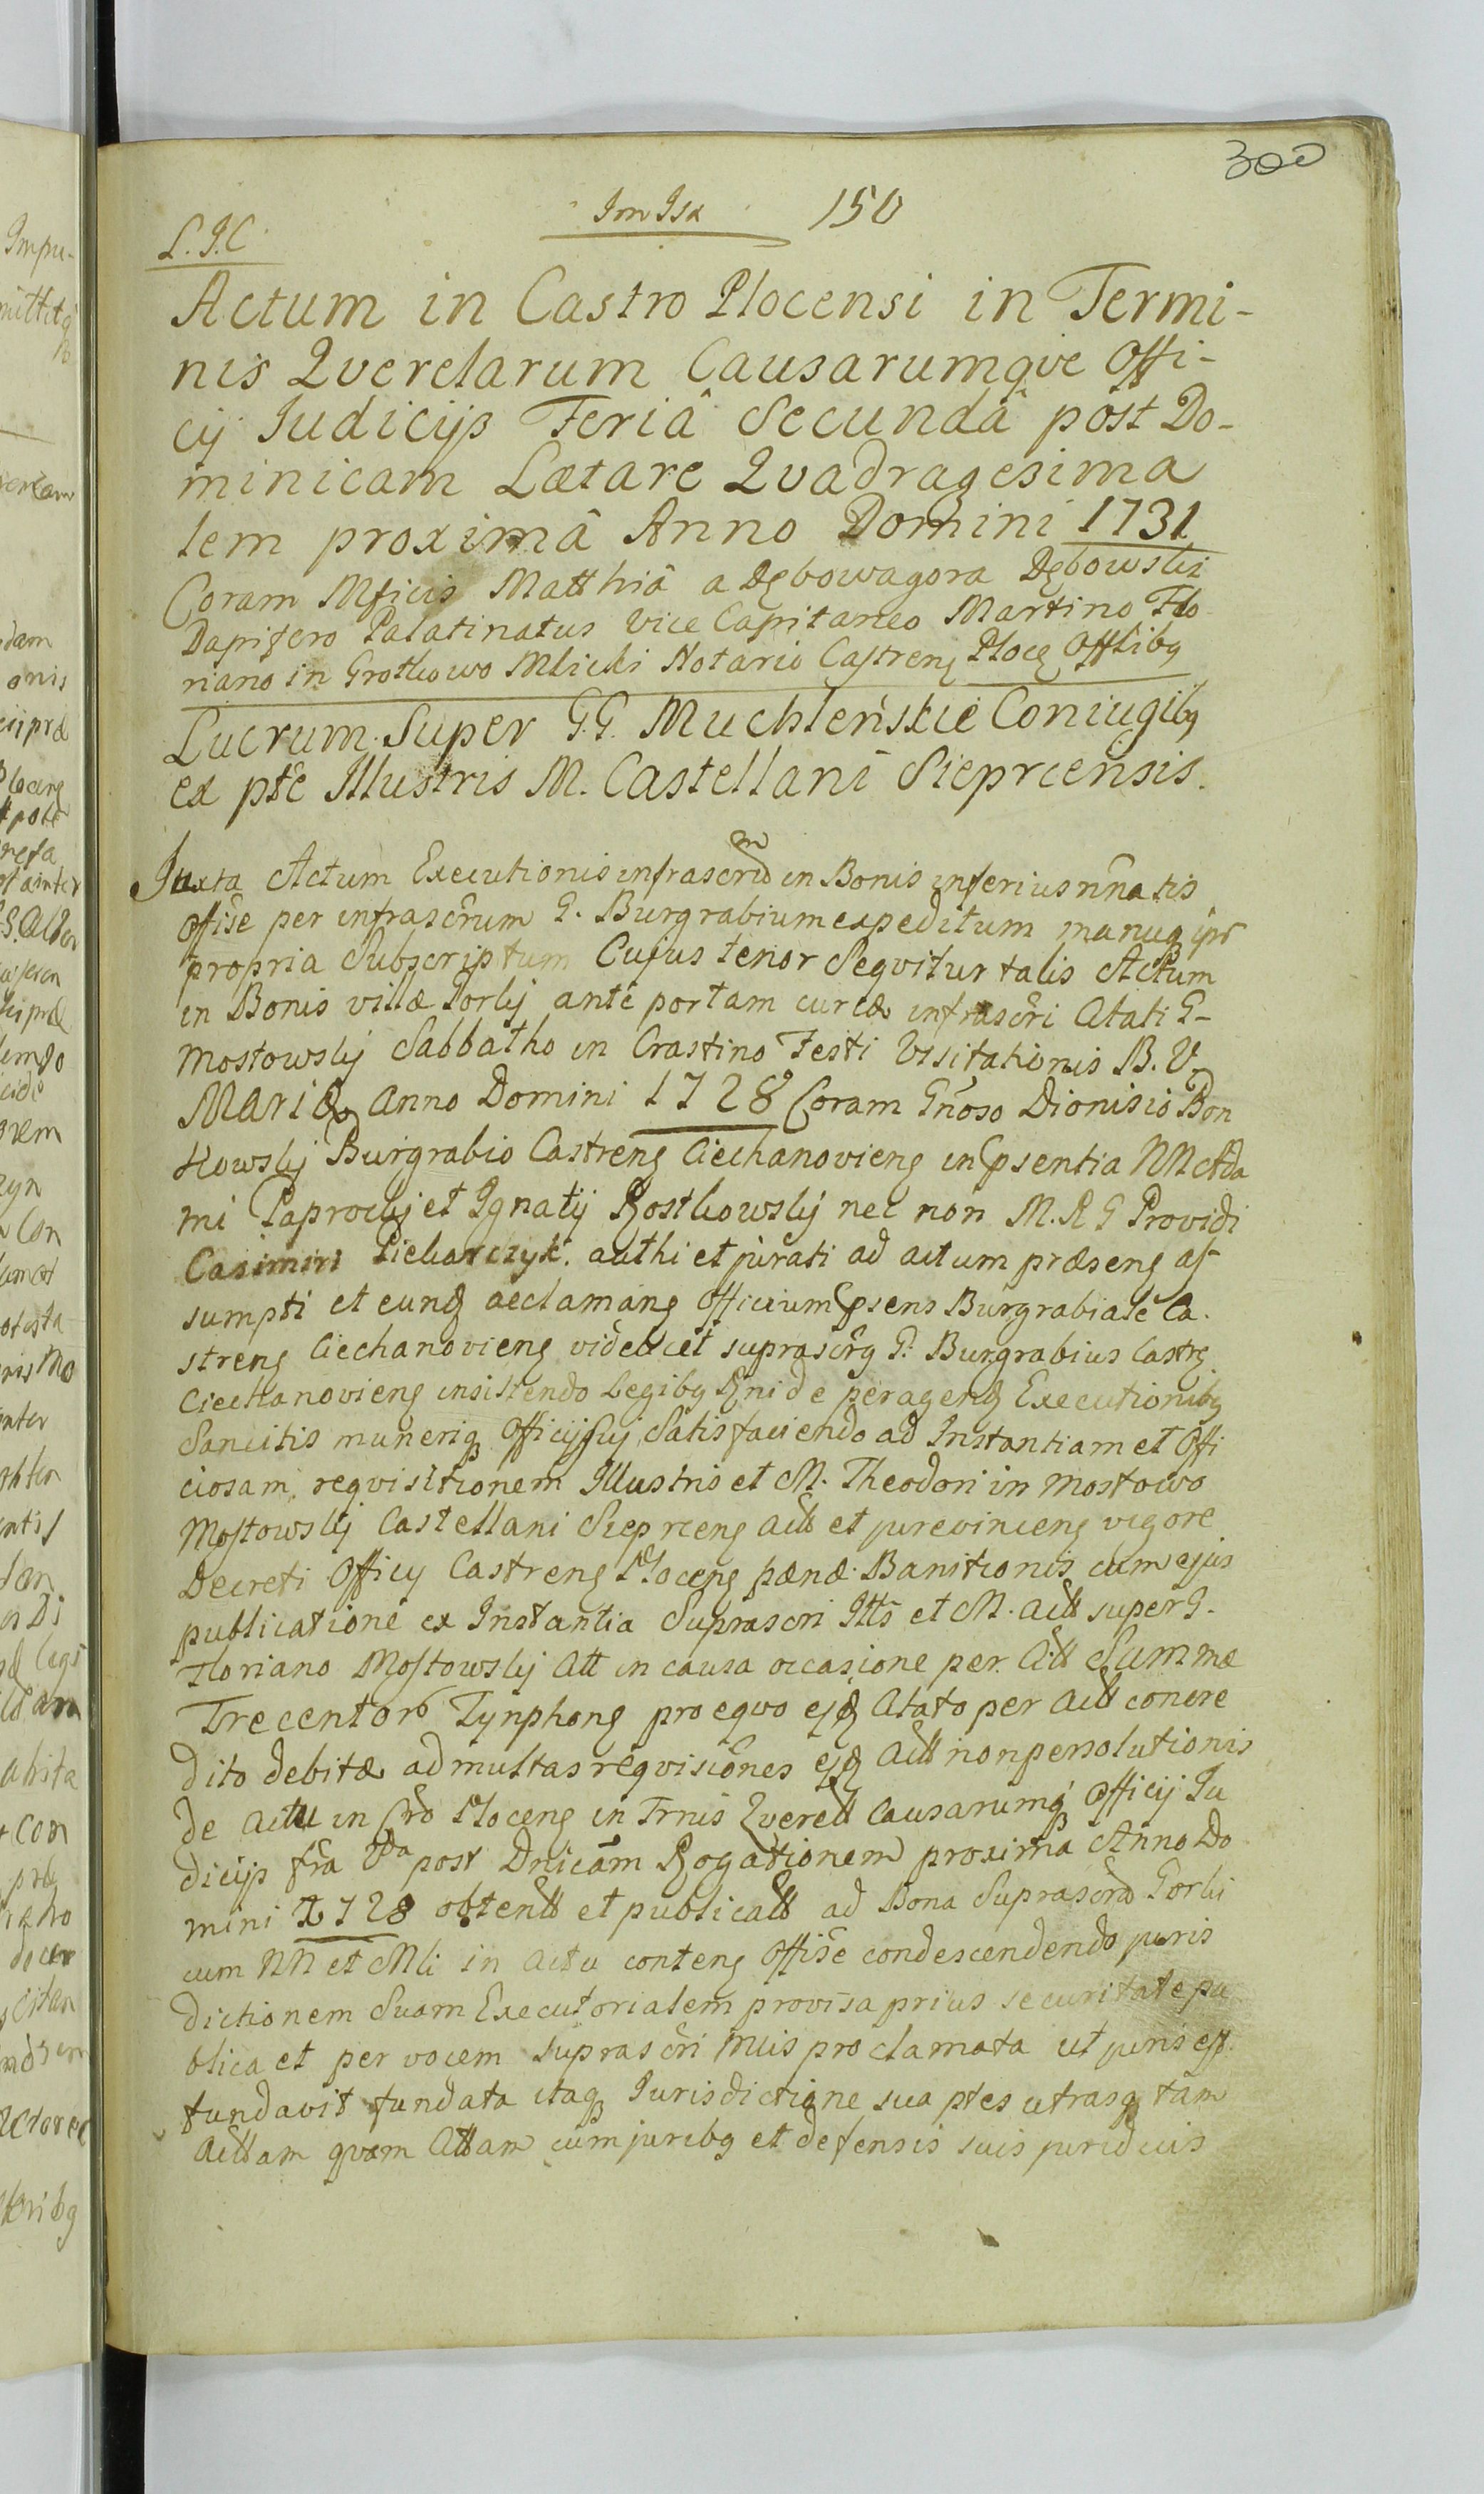 300
ImIsx 150
L.I.C
Actum in Castro Plocensi in Termi-
nis Qverelarum Causarumqve Offi-
cij Iudicijs Feriâ Secundâ post Do-
minicam Lætare Qvadragesima
lem proximâ Anno Domini 1731
Coram Mficis Matthiâ a Dębowagora Dębowski
Dapifero Palatinatus Vice Capitaneo Martino Flo
riano in Grotkowo Mlicki Notario Castreng Plocg Offlibg
Lucrum Super G.G. Muchleńskie Coniugibg
ex pte Illustris M. Castellani Sieprcensis.
Iuxta Actum Executionis infrascrm in Bonis inferius nnatis
offise per infrascrum G. Burgrabium expeditum manuq ips
propria Subscriptum Cujus tenor Seqvitur talis Actum
in Bonis villæ Gorkj ante portam curiæ infrascri Atati G-
Mostowskj Sabbatho in Crastino Festi Visitationis B.V.
Mariæ Anno Domini 1728 Coram Gnoso Dionisio Bon
kowskj Burgrabio Castreng Ciechanovieng in psentia NN Ada
mi Paprockj et Ignatij Rostkowskj nec non M.R G Providi
Casimiri Piekarczyk. authi et jurati ad actum præseng as
sumpti et eundg acclamang Officium psens Burgrabiale Ca.
streng Ciechanovieng videlicet suprascrg G. Burgrabius Castrg
Ciechanovieng insistendo Legibg Rni de peragendg Executionibg
Sancitis munerisq Officij sui Satisfaciendo ad Instantiam et Offi
ciosam reqvisitionem Illustris et M. Theodori in Mostowo
Mostowskj Castellani Sieprceng Actt et jurevinceng vigore
Decreti Officij Castreng Ploceng pænæ Banitionis cum ejus
publicatione ex Instantia Suprascri Itts et M. Actt super G.
Floriano Mostowskj Att in causa occasione per Actt Summæ
Trecentor Tynphong pro eqvo ejdg Atato per Actt concre
dito debitæ ad multas reqvisiones ejdg Actt non persolutionis
de Actu in Cro Ploceng in Trnis Qverell Causarumq Officij Iu
dicijs fria 2da post Dnicam Rogationem proxima Anno Do
mini 1728 obtentt et publicatt ad Bona Suprascra Gorki
cum NN et Mli in actu conteng offise condescendendo juris
dictionem Suam Executorialem provisa prius securitate pu
blica et per vocem suprascri Mnis proclamata ut juris est
fundavit fundata itaq Iurisdictione sua ptes utrasq tam
Acttam qvam Attam cum juribg et defensis suis juridicis